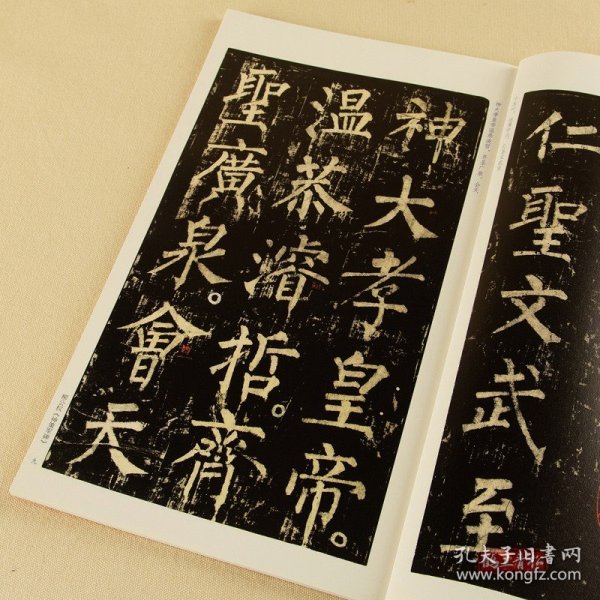 仁聖文武至
神大孝皇帝。
温恭濬哲。齊
聖廣泉。會天
九
孔夫子旧书网
www.kongfz.com